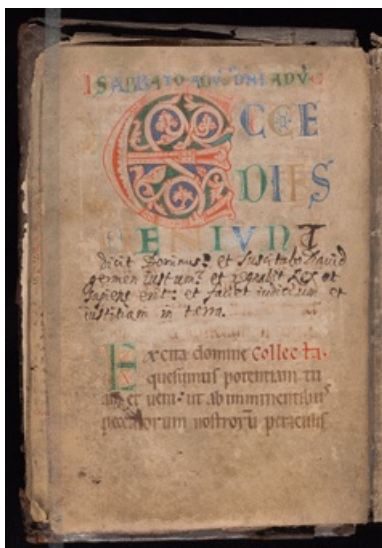 SABBATO
ECCE
DIES
VENIVNT
dicit Dominus: et suscitabo David
germen iustum: et regnabit Rex et
sapiens erit: et faciet iudicium et
iustitiam in terra.
Excita domine Collecta.
quesumus potentiam tu
am et veni. ut ab imminentibus
peccatorum nostrorū periculis